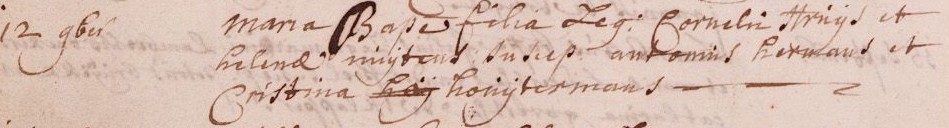 12 9bris Maria Bapt filia Leg: Cornelii Struys et
helenæ nuytens suscep. antonius hermans et
Cristina hoüijtermans